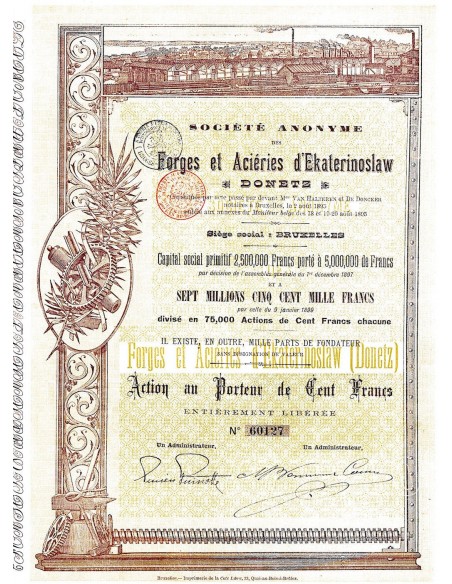 SOCIÉTÉ ANONYME
DES
Forges et Aciéries d'Ekaterinoslaw
DONETZ
Constituée par acte passé par devant Mes VAN HALTEREN et DE DONCKER
notaires à Bruxelles, le 2 août 1895
publié aux annexes du Moniteur belge des 18 et 19-20 août 1895
Siège social : BRUXELLES
Capital social primitif 2,500,000 Francs porté à 5,000,000 de Francs
par décision de l'assemblée générale du 1er décembre 1897
ET A
SEPT MILLIONS CINQ CENT MILLE FRANCS
par celle du 9 janvier 1899
divisé en 75,000 Actions de Cent Francs chacune
IL EXISTE, EN OUTRE, MILLE PARTS DE FONDATEUR
SANS DÉSIGNATION DE VALEUR
Forges et Aciéries d'Ekaterinoslaw (Donetz)
Action au Porteur de Cent Francs
ENTIÈREMENT LIBÉRÉE
No 60127
Un Administrateur, Un Administrateur,
Bruxelles. — Imprimerie